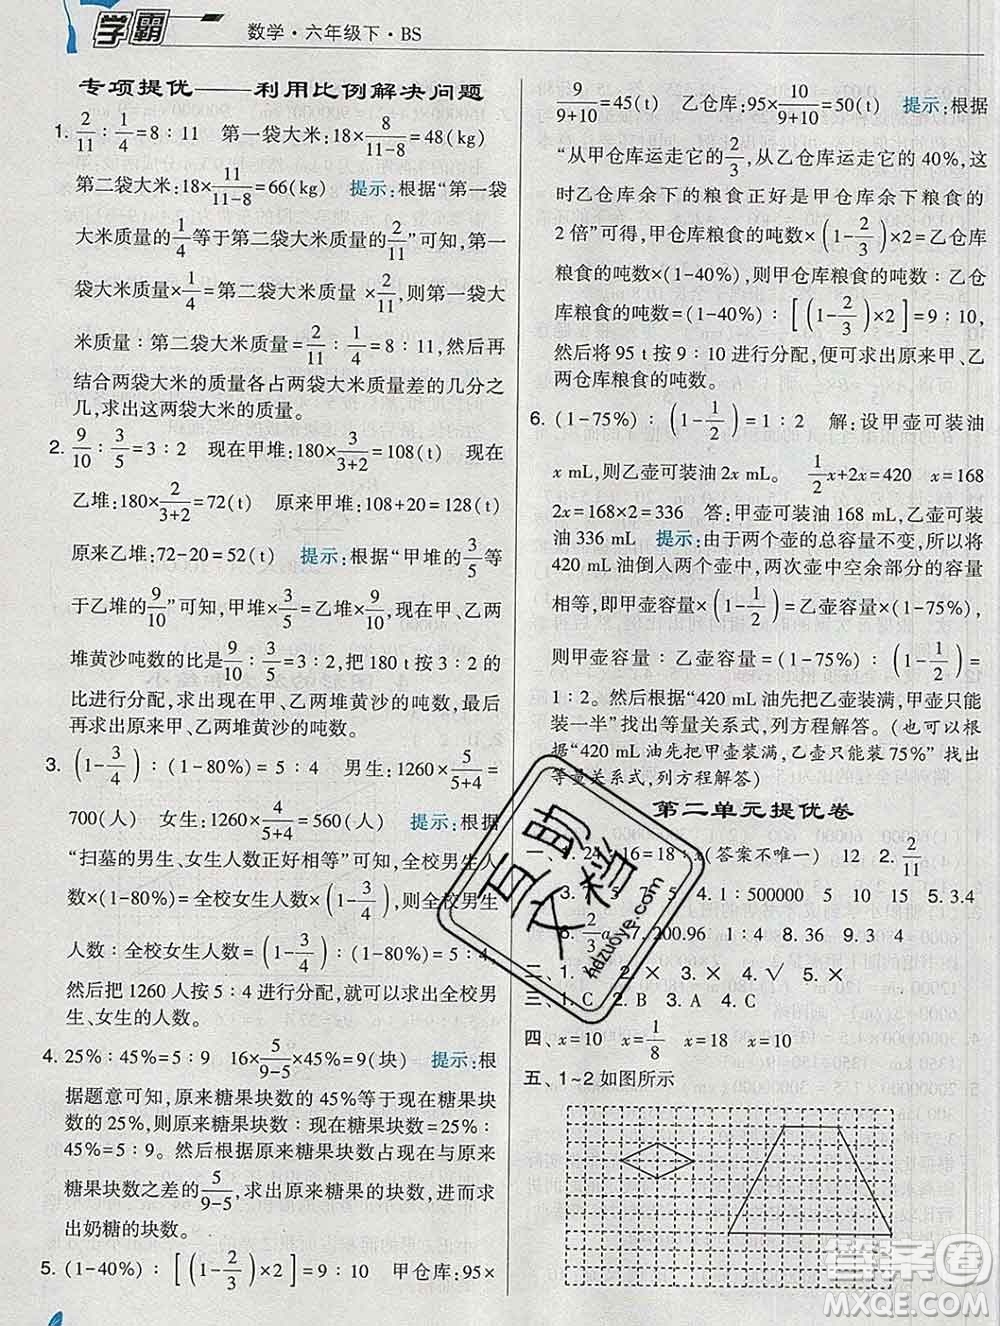 学霸 数学·六年级下·BS
专项提优——利用比例解决问题
1. 2/11∶1/4=8∶11 第一袋大米:18×8/(11-8)=48(kg)
第二袋大米:18×11/(11-8)=66(kg) 提示:根据“第一袋
大米质量的1/4等于第二袋大米质量的2/11”可知,第一
袋大米质量×1/4=第二袋大米质量×2/11,则第一袋大
米质量∶第二袋大米质量=2/11∶1/4=8∶11,然后再
结合两袋大米的质量各占两袋大米质量差的几分之
几,求出这两袋大米的质量。
2. 9/10∶3/5=3∶2 现在甲堆:180×3/(3+2)=108(t) 现在
乙堆:180×2/(3+2)=72(t) 原来甲堆:108+20=128(t)
原来乙堆:72-20=52(t) 提示:根据“甲堆的3/5等
于乙堆的9/10”可知,甲堆×3/5=乙堆×9/10,现在甲、乙两
堆黄沙吨数的比是9/10∶3/5=3∶2,把180 t按3∶2
进行分配,求出现在甲、乙两堆黄沙的吨数,最后
再求出原来甲、乙两堆黄沙的吨数。
3. (1-3/4)∶(1-80%)=5∶4 男生:1260×5/(5+4)=
700(人) 女生:1260×4/(5+4)=560(人) 提示:根据
“扫墓的男生、女生人数正好相等”可知,全校男生人
数×(1-80%)=全校女生人数×(1-3/4),则全校男生
人数∶全校女生人数=(1-3/4)∶(1-80%)=5∶4。
然后把1260人按5∶4进行分配,可以求出全校男
生、女生的人数。
4. 25%∶45%=5∶9 16×5/(9-5)×45%=9(块) 提示:根
据题意可知,原来糖果块数的45%等于现在糖果块
数的25%,则原来糖果块数∶现在糖果块数=25%∶
45%=5∶9。然后根据原来糖果块数占现在与原来
糖果块数之差的5/(9-5),求出原来糖果的块数,进而求
出奶糖的块数。
5. (1-40%)∶[(1-2/3)×2]=9∶10 甲仓库:95×
9/(9+10)=45(t) 乙仓库:95×10/(9+10)=50(t) 提示:根据
“从甲仓库运走它的2/3,从乙仓库运走它的40%,这
时乙仓库余下的粮食正好是甲仓库余下粮食的
2倍”可得,甲仓库粮食的吨数×(1-2/3)×2=乙仓库
粮食的吨数×(1-40%),则甲仓库粮食的吨数∶乙仓
库粮食的吨数=(1-40%)∶[(1-2/3)×2]=9∶10,
然后将95 t按9∶10进行分配,便可求出原来甲、乙
两仓库粮食的吨数。
6. (1-75%)∶(1-1/2)=1∶2 解:设甲壶可装油
x mL,则乙壶可装油2x mL。 1/2x+2x=420 x=168
2x=168×2=336 答:甲壶可装油168 mL,乙壶可装
油336 mL。 提示:由于两个壶的总容量不变,所以将
420 mL油倒入两个壶中,两次壶中空余部分的容量
相等,即甲壶容量×(1-1/2)=乙壶容量×(1-75%),
则甲壶容量∶乙壶容量=(1-75%)∶(1-1/2)=
1∶2。然后根据“420 mL油先把乙壶装满,甲壶只能
装一半”找出等量关系式,列方程解答。(也可以根
据“420 mL油先把甲壶装满,乙壶只能装75%”找出
等量关系式,列方程解答)
第二单元提优卷
一、1. 24 16=18 (答案不唯一) 12 2. 2/11
3. 5 7 5 4. 1∶500000 15 10 5. 3.4
6. 2/3 a 7. 200.96 1∶4 8. 36 9. 3 4
二、1. × 2. × 3. × 4. √ 5. ×
三、1. C 2. B 3. A 4. C
四、x=10 x=1/8 x=18 x=10
五、1~2如图所示
互助文档
hdzuoye.com
答案圈
MXQE.COM